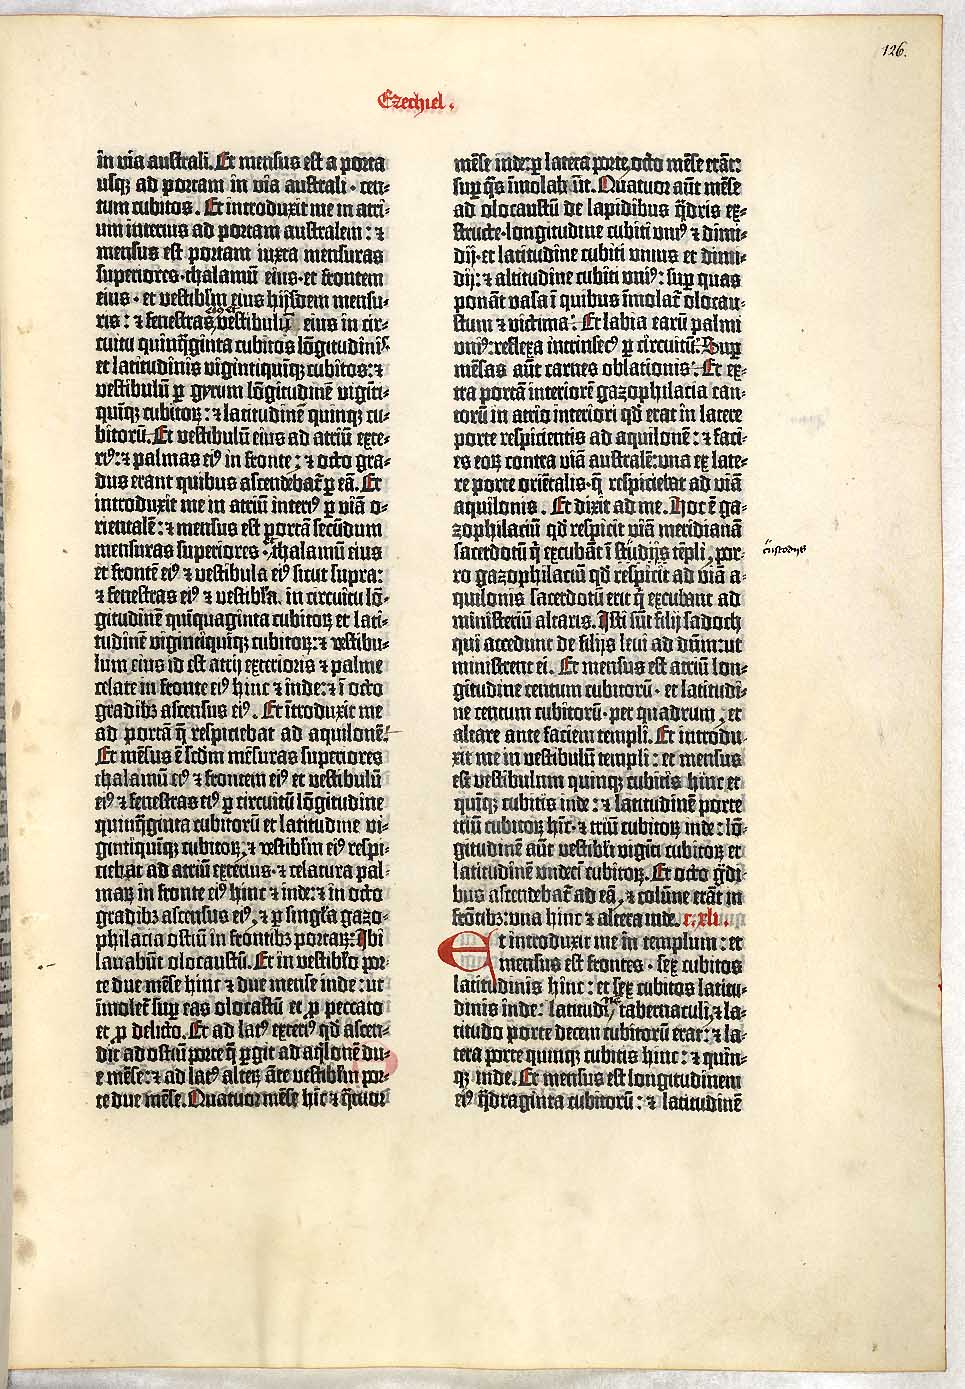 126.
Ezechiel.
in via australi. Et mensus est a porta
usq̃ ad portam in via australi · cen-
tum cubitos. Et introduxit me in atri-
um interius ad portam australem: ⁊
mensus est portam iuxta mensuras
superiores · thalamū eius · et frontem
eius · et vestibl̃m eius hijsdem mensu-
ris: ⁊ fenestras vestibuliq̃ eius in cir-
cuitu quinq̃ginta cubitos lōgitudinis
et latitudinis vigintiquiq̃ cubitos: ⁊
vestibulū ꝑ gyrum lōgitudinē viginti-
quiq̃ cubitoꝝ: ⁊ latitudinē quinqꝫ cu-
bitorū. Et vestibulū eius ad atriū exte-
riꝰ: ⁊ palmas eiꝰ in fronte: ⁊ octo gra-
dus erant quibus ascendebat̃ ꝑ eā. Et
introduxit me in atriū interiꝰ ꝑ viā o-
rientalē: ⁊ mensus est portā secūdum
mensuras superiores · thalamū eius
et frontē eiꝰ ⁊ vestibula eiꝰ sicut supra:
⁊ fenestras eiꝰ ⁊ vestibl̃a in circuitu lō-
gitudinē quīquaginta cubitoꝝ et lati-
tudinē vigintiquiqꝫ cubitoꝝ: ⁊ vestibu-
lum eius id est atrij exterioris ⁊ palme
celate in fronte eiꝰ hinc ⁊ inde: ⁊ ī octo
gradibꝫ ascensus eiꝰ. Et ītroduxit me
ad portā q̃ respiciebat ad aquilonē.
Et mēsus ē scd̃m mēsuras superiores
thalamū eiꝰ ⁊ frontem eiꝰ et vestibulū
eiꝰ ⁊ fenestras eiꝰ ꝑ circuitū lōgitudine
quinq̃ginta cubitorū et latitudine vi-
gintiquiqꝫ cubitoꝝ, ⁊ vestibl̃m eiꝰ respi-
ciebat ad atriū exterius · ⁊ celatura pal-
maꝝ in fronte eiꝰ hinc ⁊ inde: ⁊ in octo
gradibꝫ ascensus eiꝰ, ⁊ ꝑ singl̃a gazo-
philacia ostiū in frontibꝫ portaꝝ: Ibi
lavabūt olocaustū. Et in vestibl̃o por-
te due mēse hinc ⁊ due mense inde: ut
īmolet̃ suꝑ eas olocastū et ꝓ peccato
et ꝓ delicto. Et ad latꝰ exteriꝰ qd̃ ascen-
dit ad ostiū porte q̃ ꝑgit ad aq̃lonē du-
e mēse: ⁊ ad latꝰ alteꝝ āte vestibl̃m por-
te due mēse. Quatuor mēse hīc ⁊ q̃tuor
mēse inde: ꝑ latera porte, octo mēse erāt:
suꝑ q̃s īmolab̃ūt. Quatuor aūt mēse
ad olocaustū de lapidibus q̃dris ex-
structe · longitudine cubiti uniꝰ ⁊ dimi-
dij · et latitudine cubiti unius et dimi-
dij: ⁊ altitudine cubiti uniꝰ: suꝑ quas
ponāt vasa ī quibus īmolat̃ olocau-
stum ⁊ victima. Et labia earū palmi
uniꝰ: reflexa intrinsecꝰ ꝑ circuitū. Suꝑ
mēsas aūt carnes oblationis. Et ex-
tra portā interiorē gazophilacia can-
torū in atrio interiori qd̃ erat in latere
porte respicientis ad aquilonē: ⁊ faci-
es eoꝝ contra viā australē: una ex late-
re porte oriētalis · q̃ respiciebat ad viā
aquilonis. Et dixit ad me. Hoc ē ga-
zophilaciū qd̃ respicit viā meridianā
sacerdotū q̃ excubāt ī studijs tēpli, por-
custodijs
ro gazophilaciū qd̃ respicit ad viā a-
quilonis sacerdotū erit q̃ excubant ad
ministeriū altaris. Isti sūt filij sadoch
qui accedunt de filijs levi ad dūm: ut
ministrent ei. Et mensus est atriū lon-
gitudine centum cubitorū · et latitudi-
ne centum cubitorū · per quadrum, et
altare ante faciem templi. Et introdu-
xit me in vestibulū templi: et mensus
est vestibulum quinqꝫ cubitis hinc et
quiqꝫ cubitis inde: ⁊ latitudinē porte
triū cubitoꝝ hīc · ⁊ triū cubitoꝝ inde: lō-
gitudinē aūt vestibl̃i vigīti cubitoꝝ et
latitudinē undecī cubitoꝝ. Et octo g̃di-
bus ascendebat̃ ad eā, ⁊ colūne erāt in
frōtibꝫ: una hinc ⁊ altera inde. c. xli.
Et introduxit me in templum: et
mensus est frontes · sex cubitos
latitudinis hinc: et sex cubitos latitu-
dinis inde: latitudinē tabernaculi, ⁊ la-
titudo porte decem cubitorū erat: ⁊ la-
tera porte quinqꝫ cubitis hinc: ⁊ quin-
qꝫ inde. Et mensus est longitudinem
eiꝰ q̃draginta cubitorū: ⁊ latitudinē